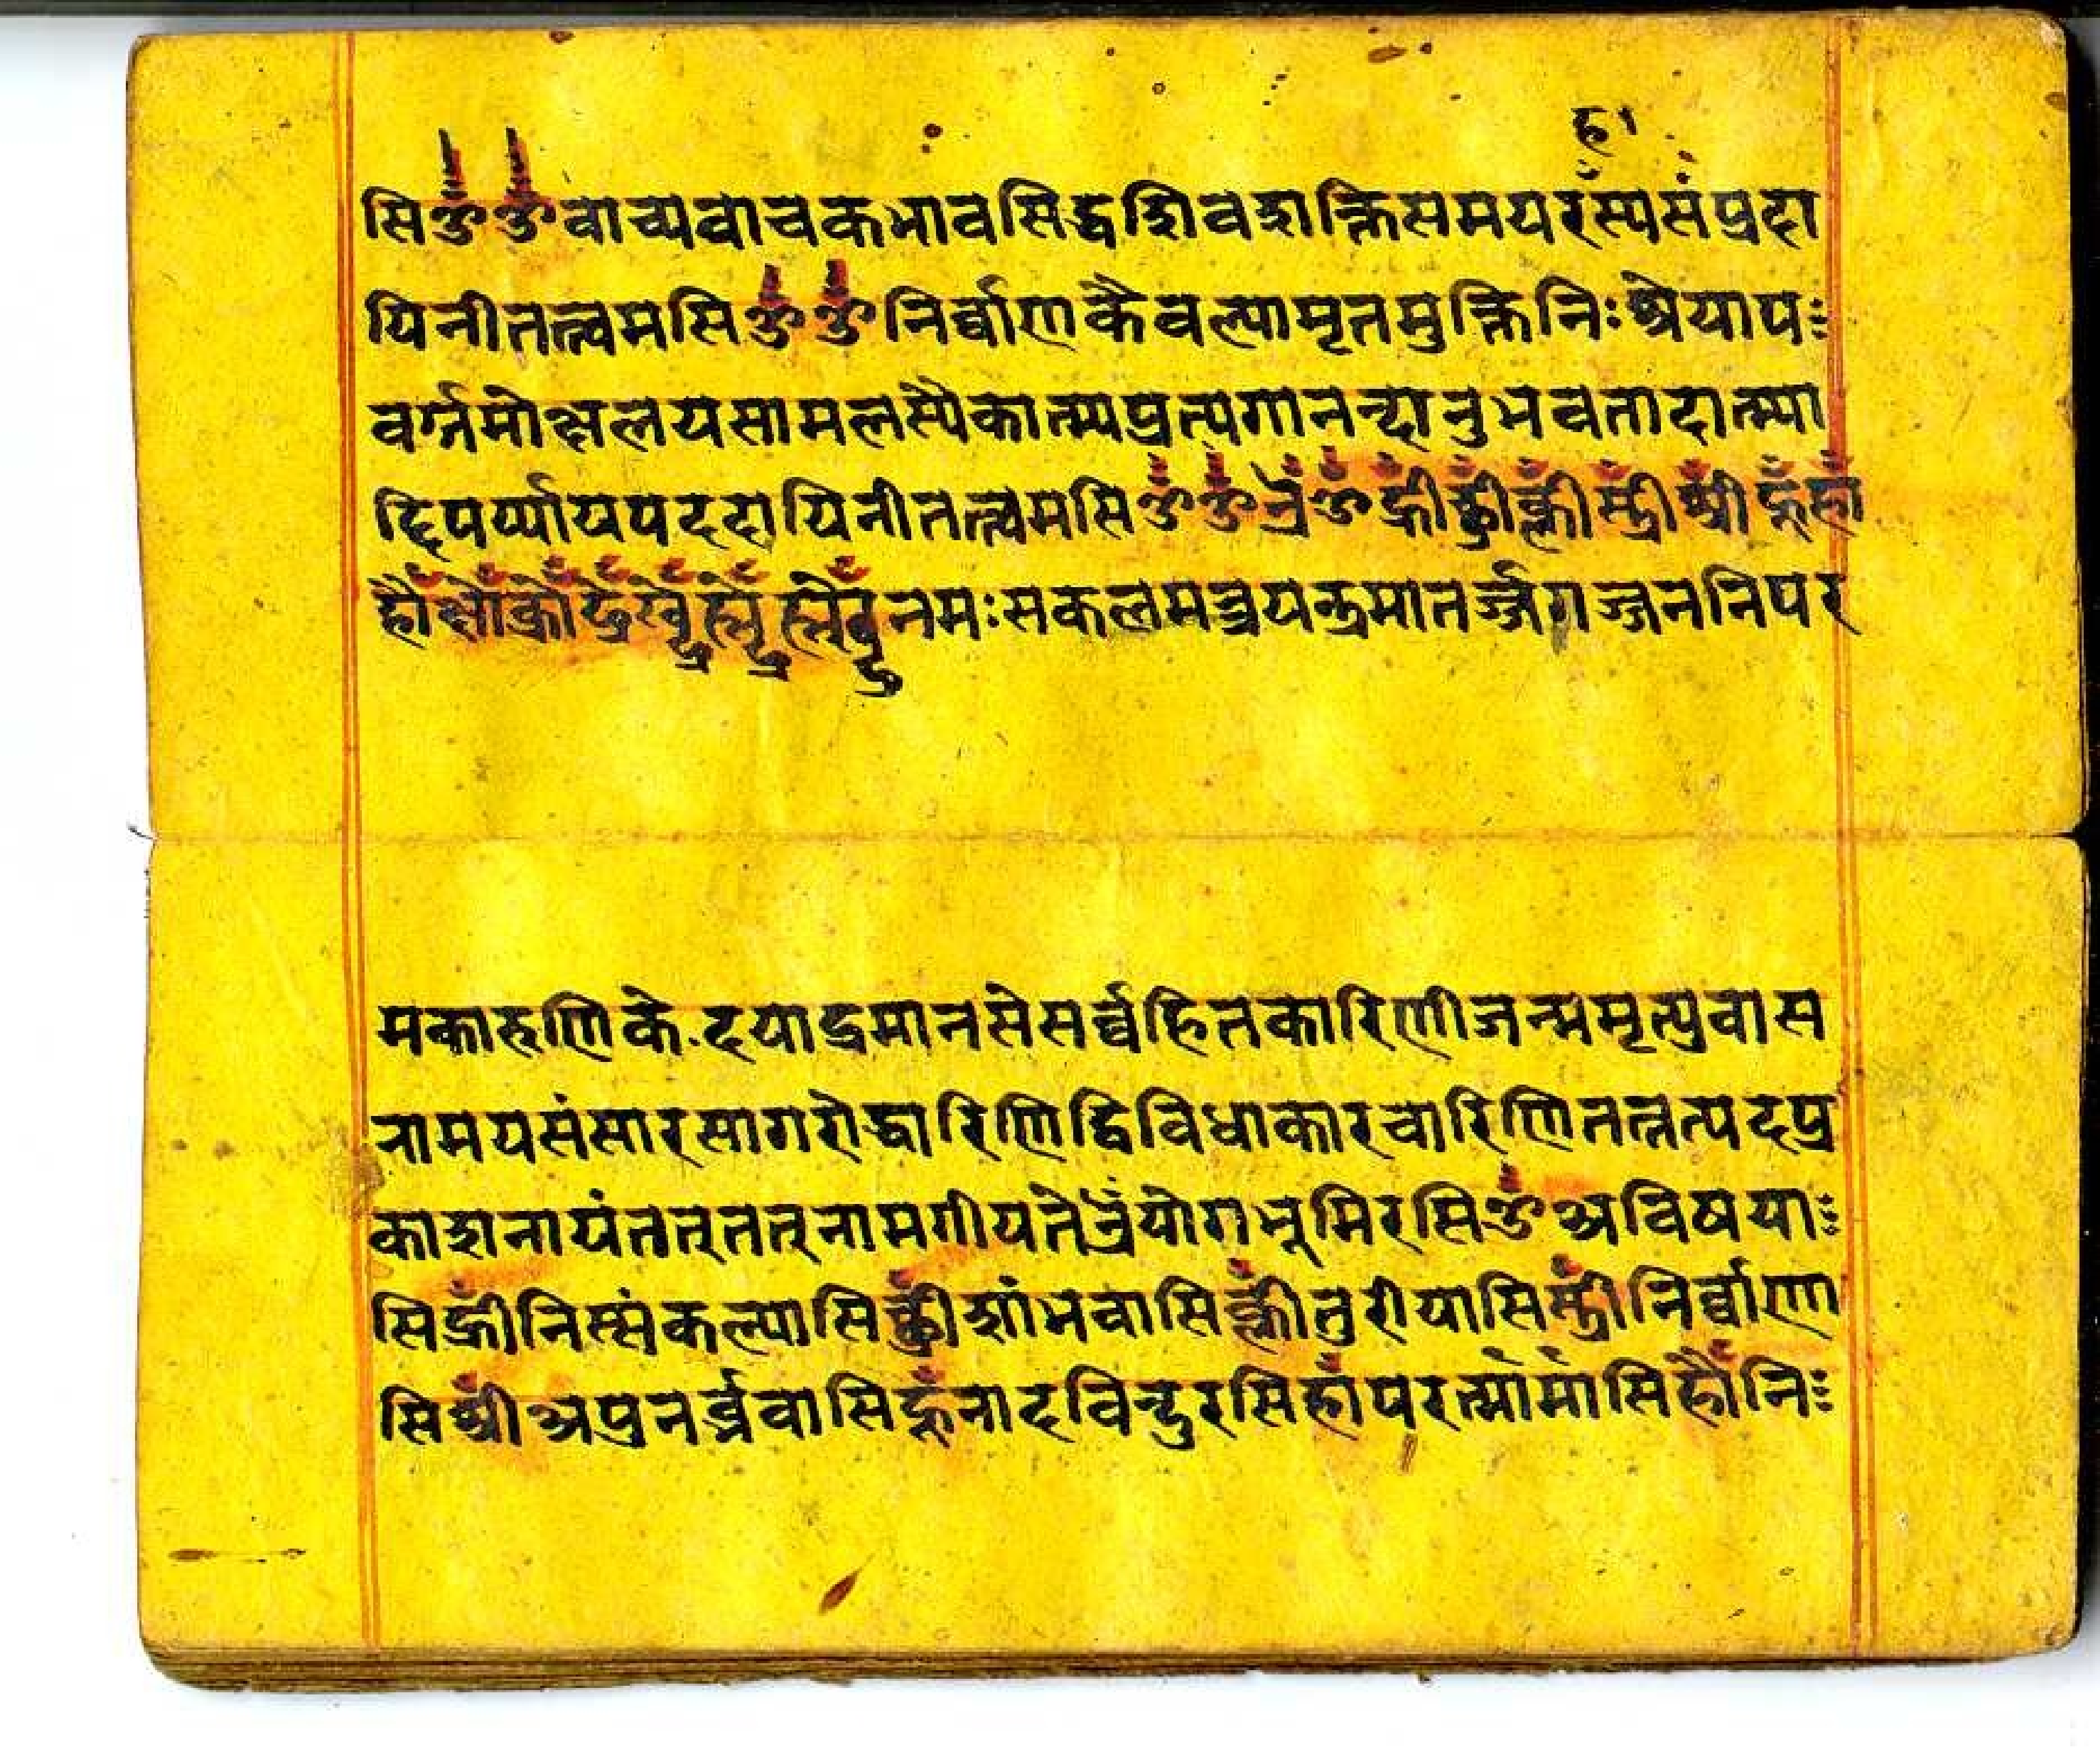 ह।
सिॐ ॐ वाच्यवाचकभावसिद्धशिवशक्तिसमयरस्यसंप्रदा
यिनीतत्त्वमसिॐ ॐ निर्व्वाणकैवल्यामृतमुक्तिनिःश्रेयापः
वर्ग्गमोक्षलयसामलस्यैकात्म्यप्रत्यगानन्दानुभवतादात्म्या
दिपर्य्यायपददायिनीतत्त्वमसि ॐ ॐ ऐँ ॐ ह्रीँ छ्रीँ क्लीँ स्त्रीँ श्रीँ हूँ हाँ
हौँ क्षौँ क्रोँ नमःसकलमन्त्रयन्त्रमातर्ज्जगज्जननिपर
मकारुणिके.दयाद्रमानसेसर्व्वहितकारिणीजन्ममृत्युवास
नामयसंसारसागरोद्धारिणिद्विविधाकारचारिणितत्तत्पदप्र
काशनायंतत्तत्नामगीयतेऐँयोगभूमिरसिॐअविषयाः
सिह्रीँनिस्संकल्पासिछ्रीँशांभवासिक्लीँतुरीयासिस्त्रीँनिर्व्वाण
सिश्रीँअपुनर्ब्भवासिहूँनादविन्दुरसिहाँपरत्मांमांसिहौँनिः